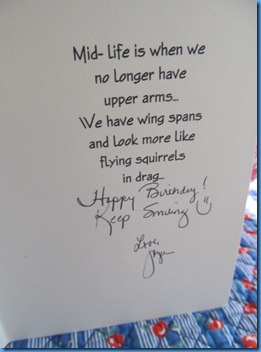 Mid-Life is when we
no Longer have
upper arms...
We have wing spans
and Look more Like
flying squirrels
in drag...
Happy Birthday!
Keep Smiling
Love,